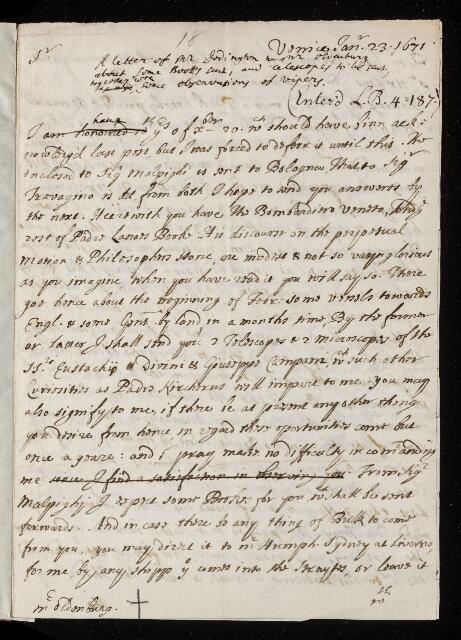 18
Venice Jan.ʳ 23. 1671
Sʳ
A letter of Mr. Dodington to Mr Oldenburg
about some Books sent, and telescopes to be sent,
together wth some observations of vipers.
(Enter'd L.B. 4. 187.)
I am honoured have yʳs of xbr 20. wch should have binn ack-
nowledg'd last post but I was forced to deferr it until this. The
inclosed to Sigʳ Malpighi is sent to Bologna, That to Sigʳ
Travagino is deld from both I hope to send you answers by
the next. Heerwith you have the Bombardiero Veneto, They
rest of Padre Lana's Booke. His discourse on the perpetuall
motion & Philosophers stone are modest & not so vaynglorious
as you imagine, when you have read it you will say so. There
goe hence about the beginning of Febr: some vessels towards
Engl. & some Gent. by land in a months time, By the former
or latter I shall send you 2 Telescopes & 2 microscopes of the
SSʳ Eustachio Divini & Giuseppe Campani wth such other
Curiosities as Padre Kircherus will impart to me. you may
also signify to me, if there be at present any other thing
you desire from hence in regard these oportunities come but
once a yeare: and I pray make no difficulty in comanding
me since I find a satisfaction in serving you. From Sigʳ
Malpighj I expect some Books for you wch shall be sent
forwards. And in case there be any thing of Bulk to come
from you, you may direct it to Mr Humph: Sydney at Livorno
for me by any shipp yt comes into the Strayts, or leave it
Mr Oldenburg.